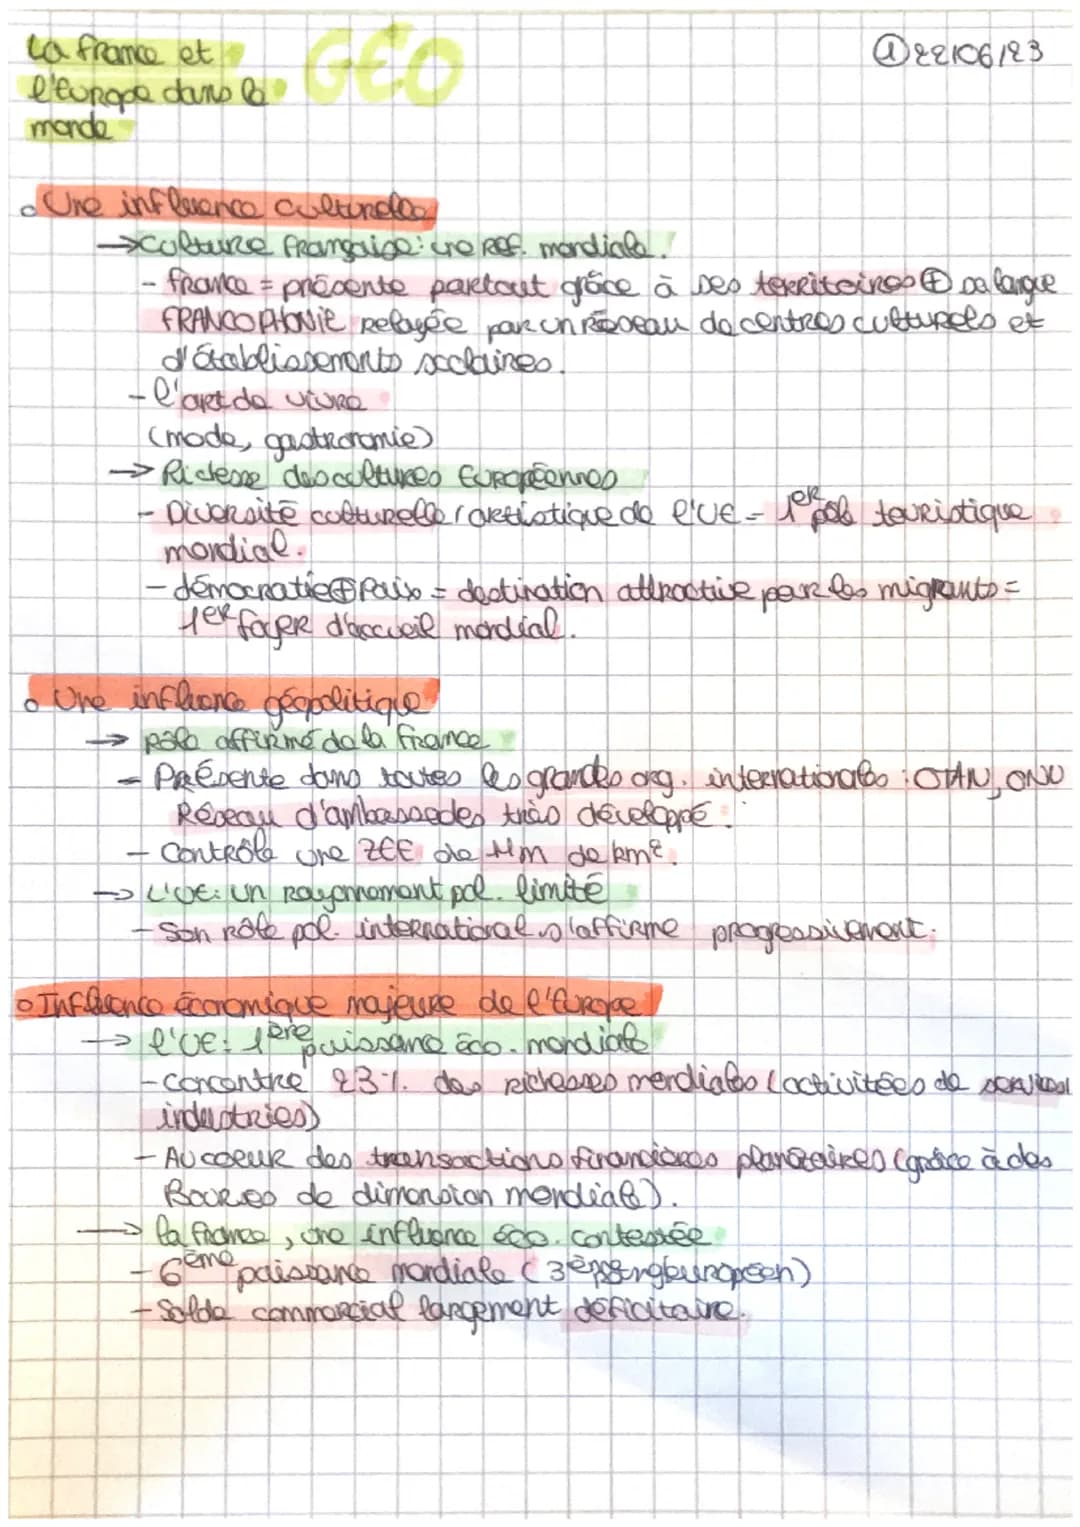 La France et
l'Europe dans le
monde
GÉO
① 22/06/23
Une influence culturelle
→ Culture française : une réf. mondiale.
- France = présente partout grâce à ses territoires ⊕ sa langue
FRANCOPHONIE relayée par un réseau de centres culturels et
d'établissements scolaires.
- l'art de vivre
(mode, gastronomie)
→ Richesse des cultures Européennes
- Diversité culturelle / artistique de l'UE = 1er pôle touristique
mondial.
- démocratie ⊕ Paix = destination attractive par les migrants =
1er foyer d'accueil mondial.
Une influence géopolitique
→ rôle affirmé de la France
- Présente dans toutes les grandes org. internationales : OTAN, ONU
Réseau d'ambassades très développé.
- Contrôle une ZEE de 11m de km².
→ L'UE : un rayonnement pol. limité
- Son rôle pol. international s'affirme progressivement.
Influence économique majeure de l'Europe
→ l'UE : 1ère puissance éco. mondiale
- Concentre 23% des richesses mondiales (activitées de services
industries)
- Au coeur des transactions financières planétaires (grâce à des
Bourses de dimension mondiale).
→ la France, une influence éco. contestée
- 6ème puissance mondiale (3è rang européen)
- Solde commercial largement déficitaire.